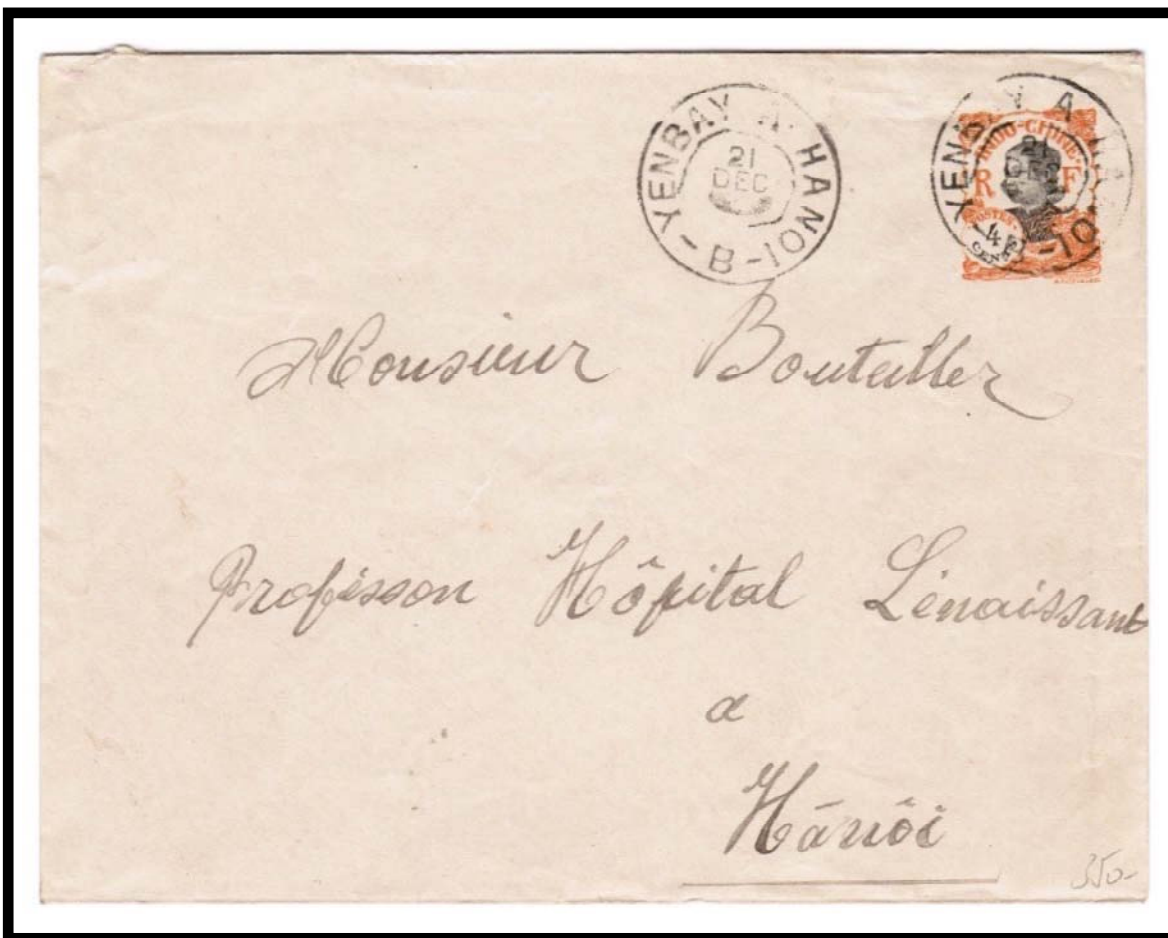 YENBAY A HANOI
21
DEC
-B-
YENBAY A HANOI
21
DEC
INDO-CHINE
R F
POSTES
4
CENTS
Monsieur Bouteiller
Professon Hôpital Lénaissant
a
Hánôi
350-